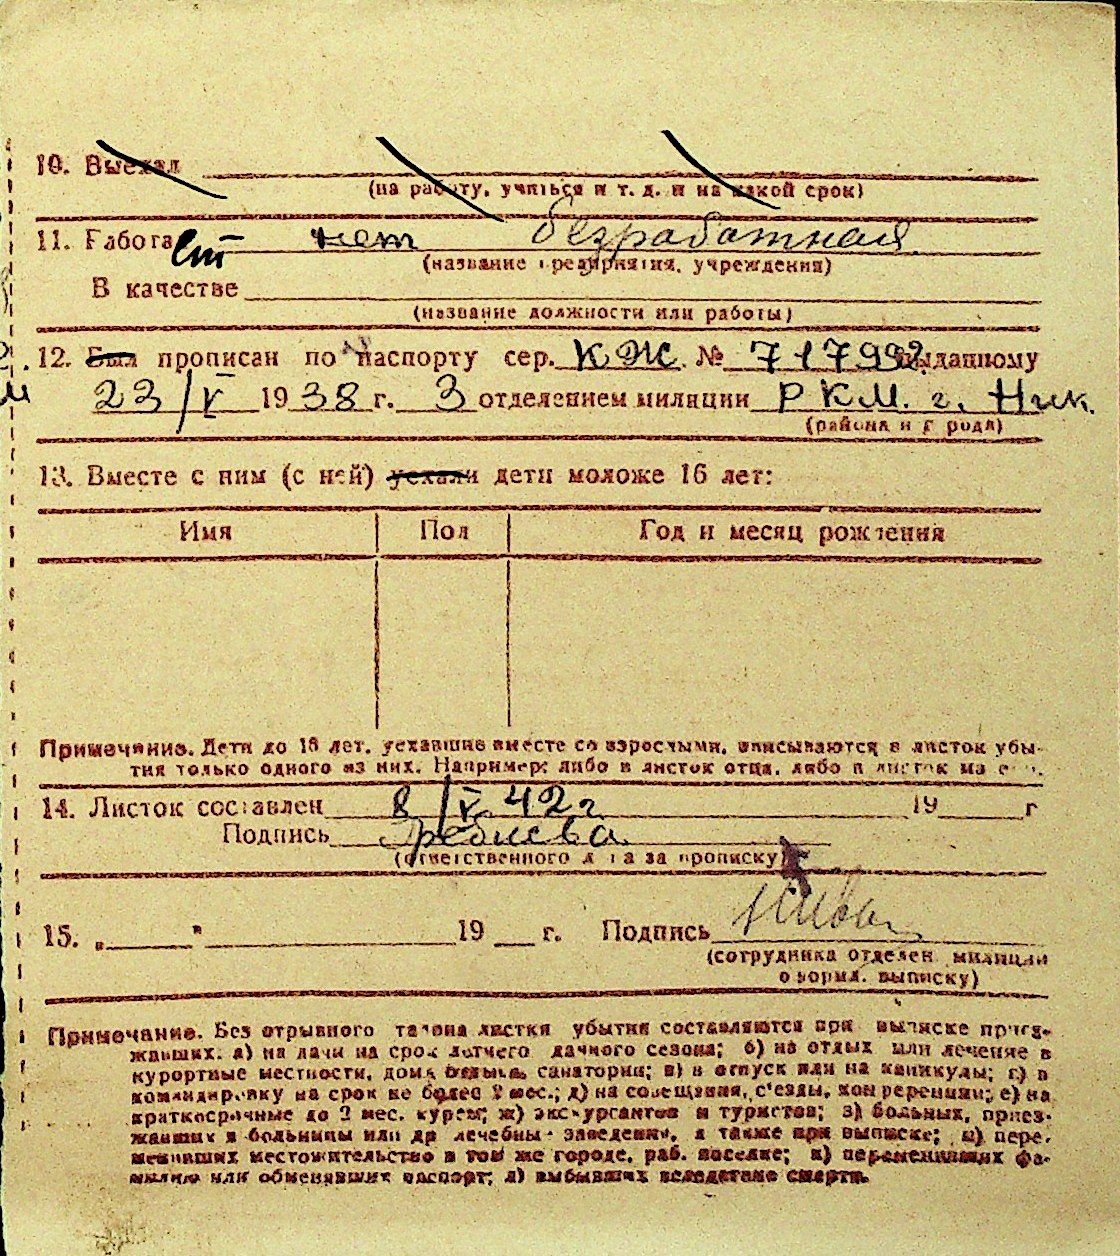 10. Выехал
(на работу, учиться и т. д. и на какой срок)
11. Работа ет нет безработная
(название предприятия, учреждения)
В качестве
(название должности или работы)
12. Был прописан по паспорту сер. КЖ № 717992 выданному
23/V 1938 г. 3 отделением милиции РКМ. г. Ник.
(района и города)
13. Вместе с ним (с ней) уехали дети моложе 16 лет:
Имя Пол Год и месяц рождения
Примечание. Дети до 16 лет, уехавшие вместе со взрослыми, вписываются в листок убы-
тия только одного из них. Например: либо в листок отца, либо в листок
14. Листок составлен 8/V 42 г 19 г
Подпись
(ответственного лица за прописку)
15. „ " 19 г. Подпись
(сотрудника отделен. милиции
оформл. выписку)
Примечание. Без отрывного талона листки убытия составляются при выписке приез-
жавших: а) на дачи на срок летнего дачного сезона; б) на отдых или лечение в
курортные местности, дома отдыха, санатории; в) в отпуск или на каникулы; г) в
командировку на срок не более 2 мес.; д) на совещания, с'езды, конференции; е) на
краткосрочные до 2 мес. курсы; ж) экскурсантов и туристов; з) больных, приез-
жавших в больницы или др лечебны заведения, а также при выписке; и) пере-
менивших местожительство в том же городе, раб. поселке; к) переменивших фа-
милию или обменявших паспорт; л) выбывших вследствие смерти.